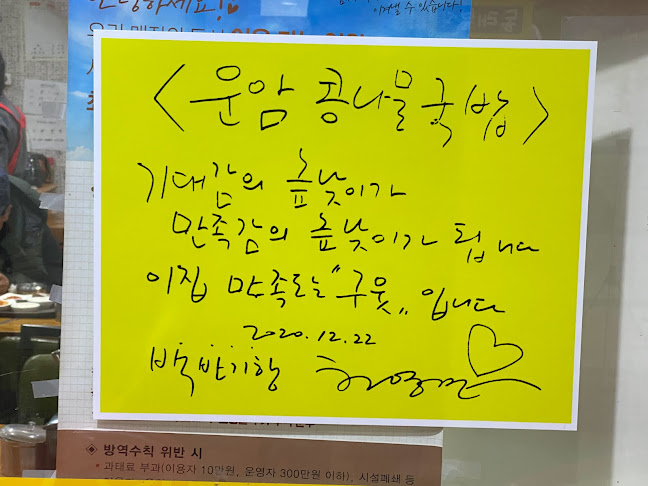 안녕하세요!
이겨낼 수 있습니다!
<운암 콩나물국밥>
기대감의 높낮이가
만족감의 높낮이가 됩니다
이집 만족도는 "구웃" 입니다
2020.12.22
백반기행 허영만
◈ 방역수칙 위반 시
* 과태료 부과(이용자 10만원, 운영자 300만원 이하), 시설폐쇄 등